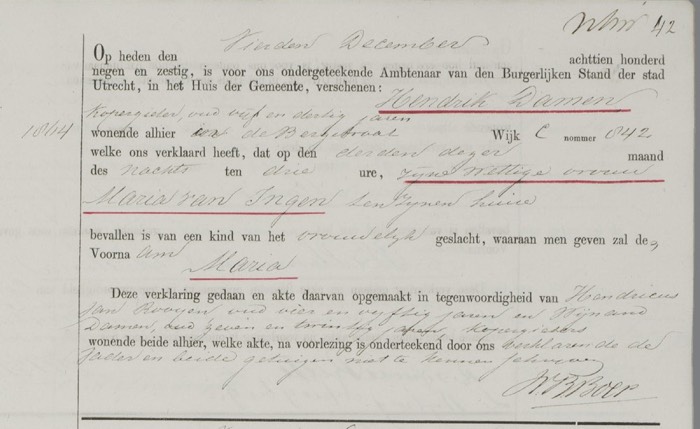 42
Op heden den Vierden December achttien honderd
negen en zestig, is voor ons ondergeteekende Ambtenaar van den Burgerlijken Stand der stad
Utrecht, in het Huis der Gemeente, verschenen:
Hendrik Damen
kopergieter, oud vijf en dertig jaren
1864
wonende alhier in de Bergstraat Wijk C nommer 842
welke ons verklaard heeft, dat op den derden dezer maand
des nachts ten drie ure, zijne wettige vrouw
Maria van Ingen ten zijnen huise
bevallen is van een kind van het vrouwelijk geslacht, waaraan men geven zal de
Voorna am
Maria
Deze verklaring gedaan en akte daarvan opgemaakt in tegenwoordigheid van Hendricus
van Rooyen oud vier en vyftig jaren en Wijnand
Damen, oud zeven en twintig jaren, kopergieters
wonende beide alhier, welke akte, na voorlezing is onderteekend door ons verklarende de
vader en beide getuigen niet te kunnen schrijven